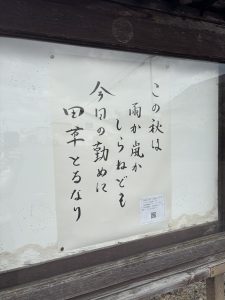 この秋は
雨か嵐か
しらねども
今日の勤めに
田草とるなり